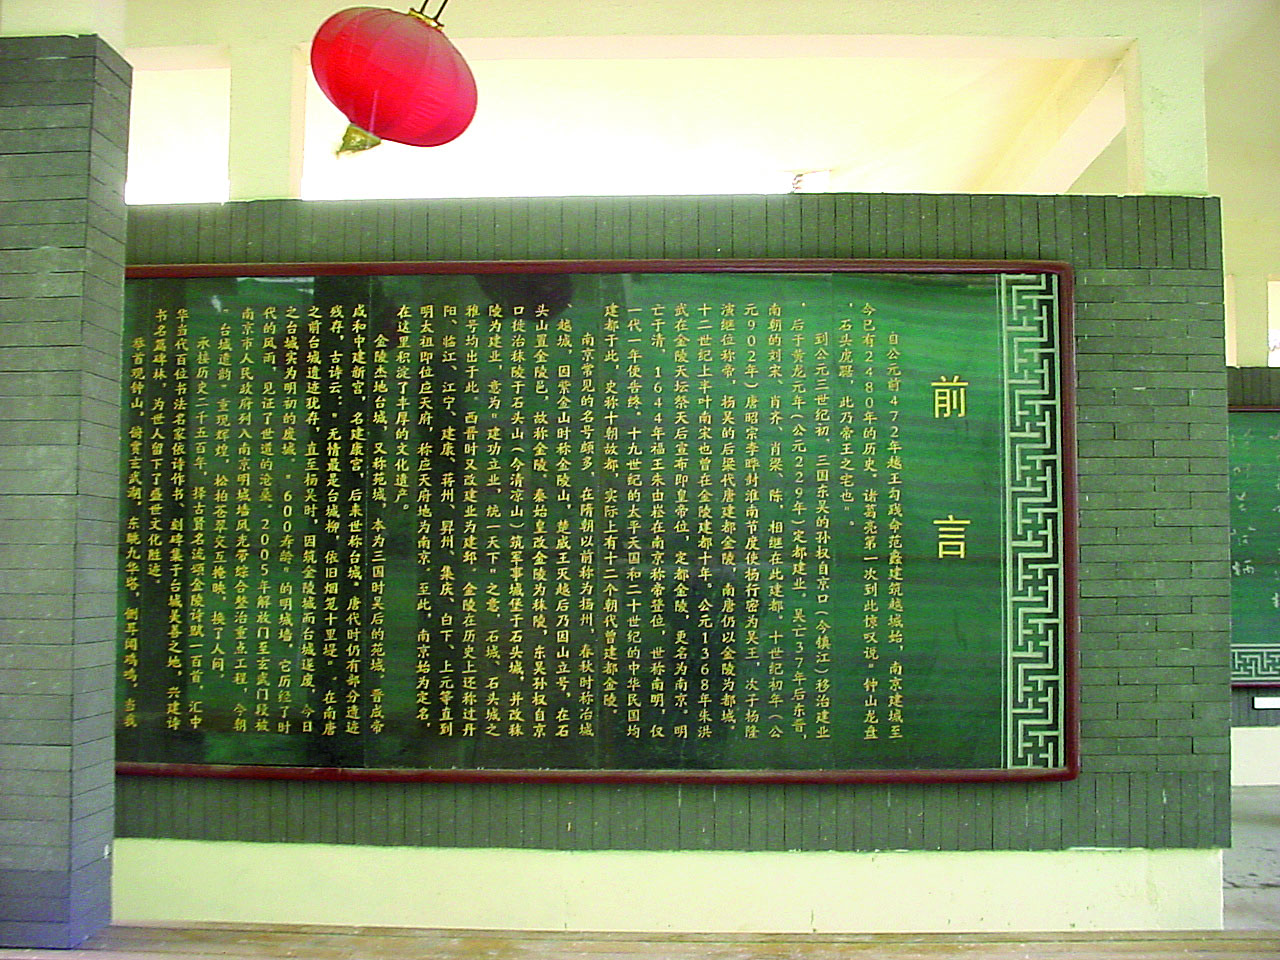 前言
自公元前472年越王勾践命范蠡建筑越城始，南京建城至
今已有2480年的历史。诸葛亮第一次到此惊叹说"钟山龙盘
，石头虎踞，此乃帝王之宅也"。
到公元三世纪初，三国东吴的孙权自京口（今镇江）移治建业
，后于黄龙元年（公元229年）定都建业。吴亡37年后东晋，
南朝的刘宋、肖齐、肖梁、陈，相继在此建都。十世纪初年（公
元902年）唐昭宗李晔封淮南节度使杨行密为吴王，次子杨隆
演继位称帝，杨吴的后梁代唐建都金陵，南唐仍以金陵为都城。
十二世纪上半叶南宋也曾在金陵建都十年。公元1368年朱洪
武在金陵天坛祭天后宣布即皇帝位，定都金陵，更名为南京。明
亡于清，1644年福王朱由崧在南京称帝登位，世称南明，仅
一代一年便告终。十九世纪的太平天国和二十世纪的中华民国均
建都于此，史称十朝故都，实际上有十二个朝代曾建都金陵。
南京常见的名号颇多，在隋朝以前称为扬州，春秋时称冶城
、越城，因紫金山时称金陵山，楚威王灭越后乃因山立号，在石
头山置金陵邑，故称金陵。秦始皇改金陵为秣陵，东吴孙权自京
口徙治秣陵于石头山（今清凉山）筑军事城堡于石头城，并改秣
陵为建业，意为"建功立业，统一天下"之意，石城、石头城之
雅号均出于此。西晋时又改建业为建邺。金陵在历史上还称过丹
阳、临江、江宁、建康、蒋州、昇州、集庆、白下、上元等直到
明太祖即位应天府，称应天府地为南京。至此，南京始为定名，
在这里积淀了丰厚的文化遗产。
金陵杰地台城，又称苑城，本为三国时吴后的苑城，晋成帝
咸和中建新宫，名建康宫，后来世称台城。唐代时仍有部分遗迹
残存，古诗云："无情最是台城柳，依旧烟笼十里堤"。在南唐
之前台城遗迹犹存，直至杨吴时，因筑金陵城而台城遂废，今日
之台城实为明初的废城。"600寿龄"的明城墙，它历经了时
代的风雨，见证了世道的沧桑。2005年解放门至玄武门段被
南京市人民政府列入南京明城墙风光带综合整治重点工程，今朝
"台城遗韵"重现辉煌，松柏苍翠交互掩映，换了人间。
承接历史二千五百年，择古贤名流颂金陵诗赋一百首，汇中
华当代百位书法名家依诗作书、刻碑集于台城美善之地，兴建诗
书名篇碑林，为世人留下了盛世文化胜迹。
举首观钟山，俯赏玄武湖，东眺九华塔，侧耳闻鸡鸣，当我